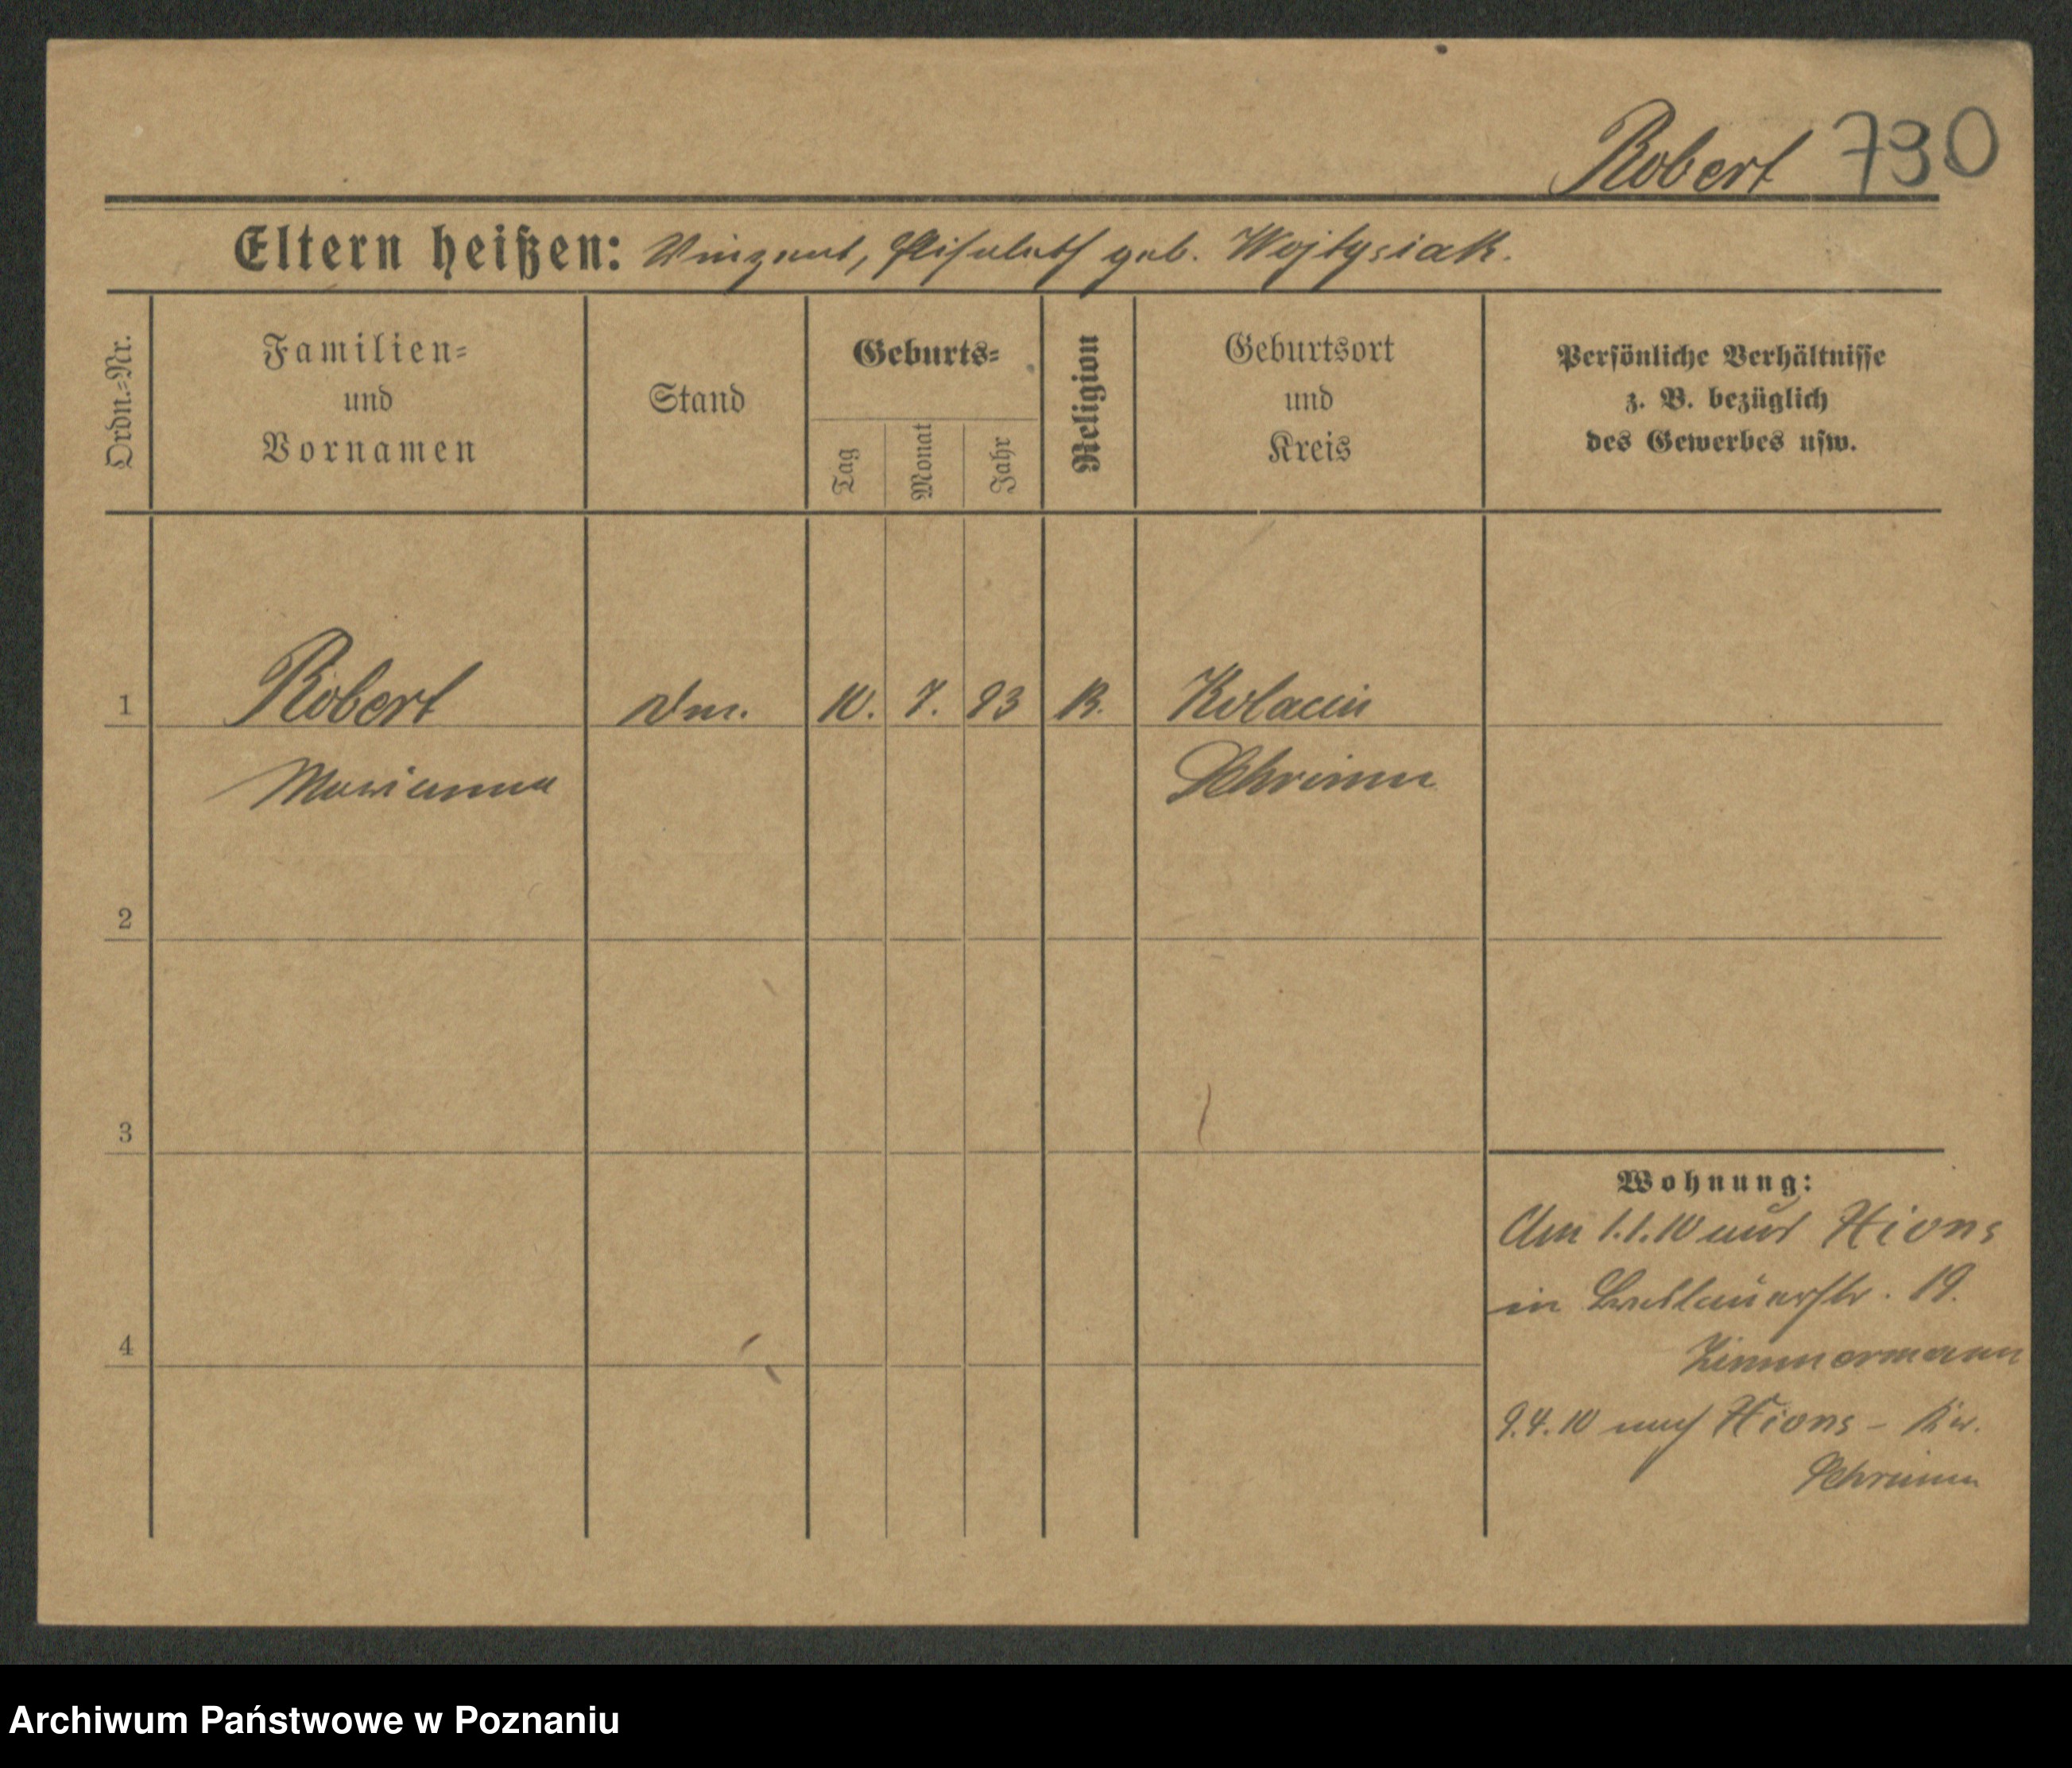 Robert 790
Eltern heißen: Vinzent, Elisabeth geb. Wojtysiak.
Ordn.-Nr.
Familien-
und
Vornamen
Stand
Geburts-
Tag
Monat
Jahr
Religion
Geburtsort
und
Kreis
Persönliche Verhältnisse
z. B. bezüglich
des Gewerbes usw.
1 Robert 10. 7. 93 K. Kolacin
Marianna Schrimm
2
3
4
Wohnung:
Am 1.1.10 aus Xions
in Breslauerstr. 19.
Zimmermann
9.4.10 nach Xions - Kr.
Schrimm
Archiwum Państwowe w Poznaniu